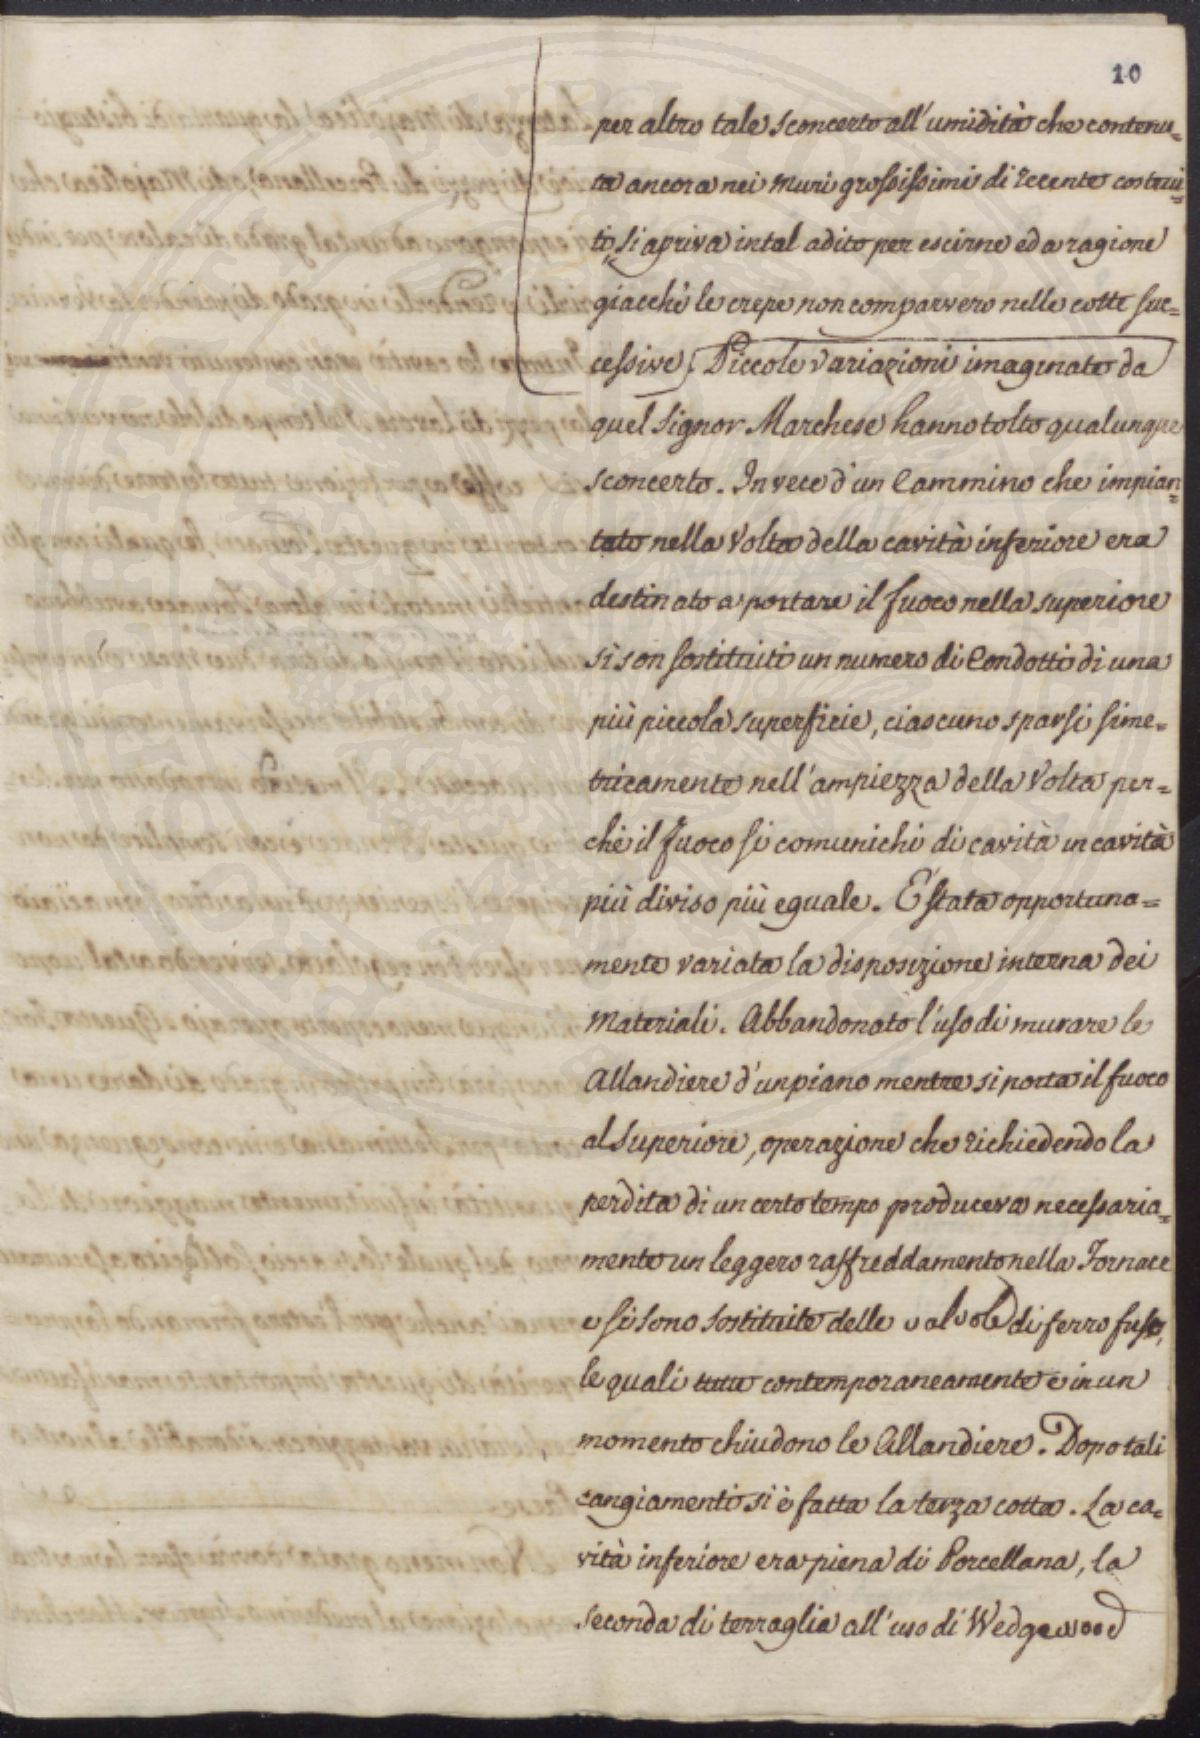 10
per altro tale sconcerto all'umidità che contenu=
ta ancora nei muri grossissimi di recente costrui=
to, si apriva in tal adito per escirne ed a ragione
giacchè le crepe non comparvero nelle cotte suc=
cessive. Piccole variazioni imaginate da
quel Signor Marchese hanno tolto qualunque
sconcerto. In vece d'un Cammino che impian=
tato nella Volta della cavità inferiore era
destinato a portare il fuoco nella superiore
si son sostituiti un numero di Condotti di una
più piccola superficie, ciascuno sparsi sime=
tricamente nell'ampiezza della Volta per=
chè il fuoco si comunichi di cavità in cavità
più diviso più eguale. E' stata opportuna=
mente variata la disposizione interna dei
Materiali. Abbandonato l'uso di murare le
Allandiere d'un piano mentre si porta il fuoco
al superiore, operazione che richiedendo la
perdita di un certo tempo produceva necessaria=
mente un leggero raffreddamento nella Fornace
e si sono sostituite delle valvole di ferro fuso,
le quali tutte contemporaneamente e in un
momento chiudono le Allandiere. Dopo tali
cangiamenti si è fatta la terza cotta. La ca=
vità inferiore era piena di Porcellana, la
seconda di terraglia all'uso di Wedgewood